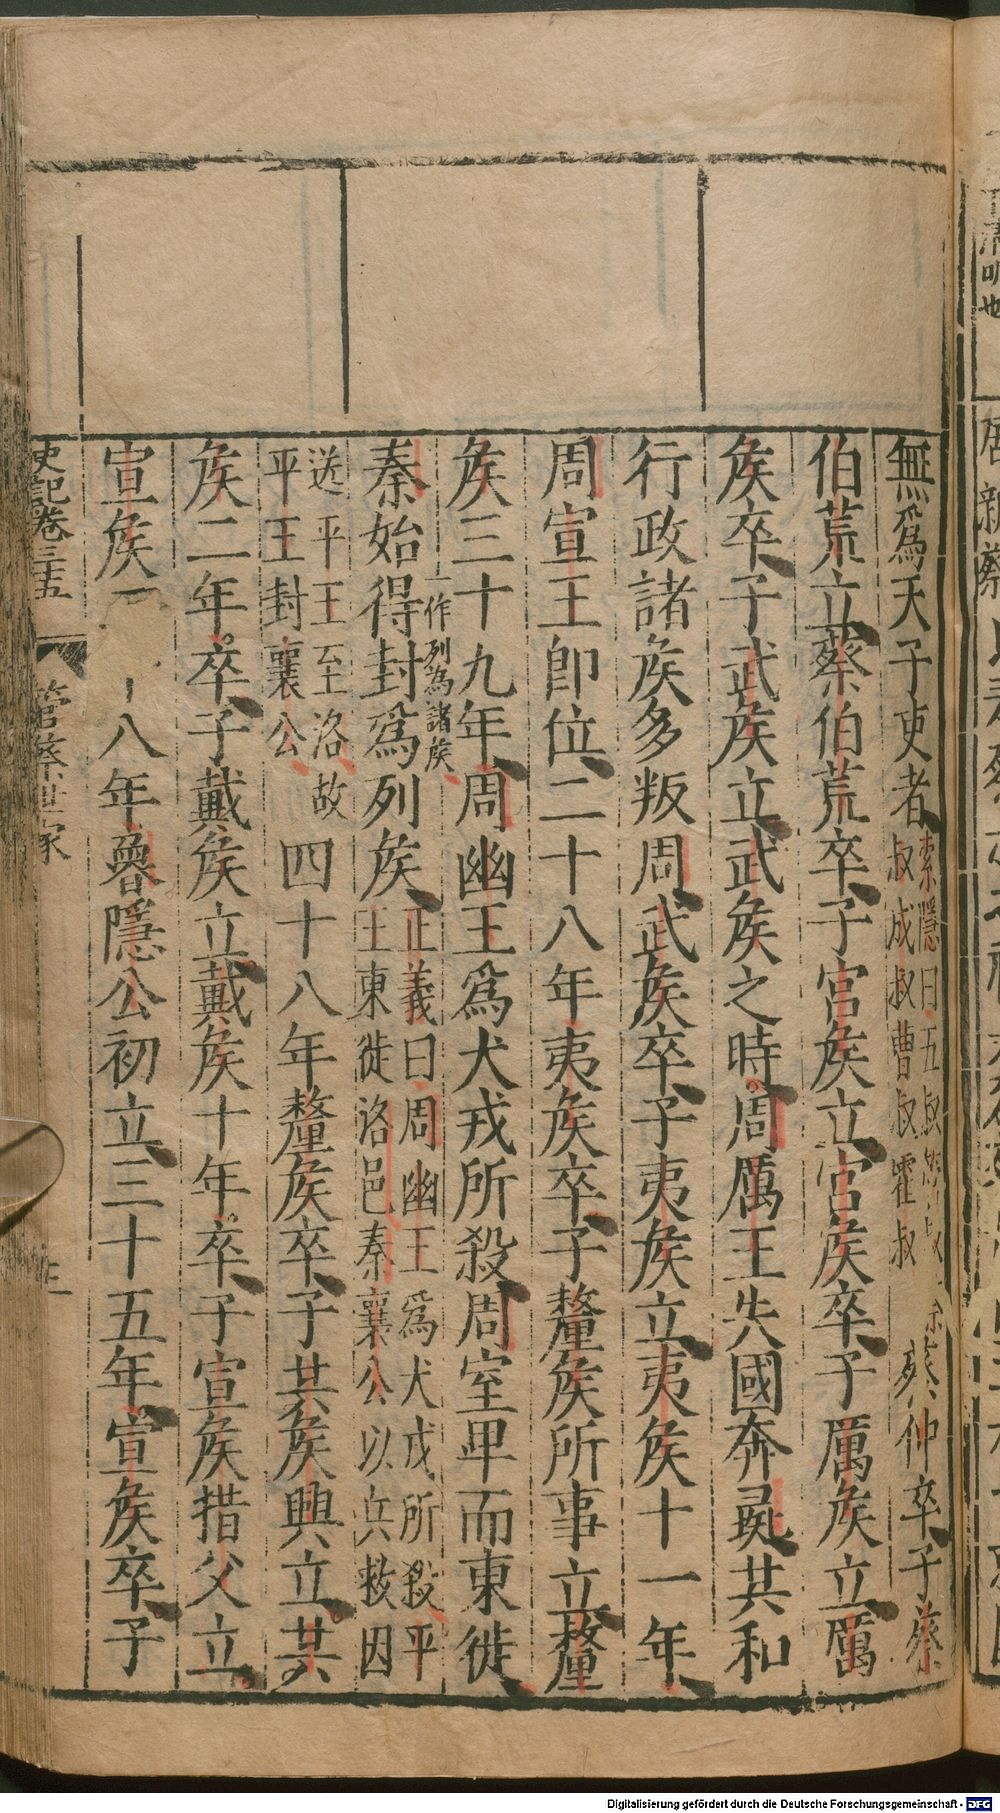 無爲天子吏者索隱曰五叔叔成叔曹叔霍叔蔡仲卒子蔡
伯荒立蔡伯荒卒子宮矦立宮矦卒子厲矦立厲
矦卒子武矦立武矦之時周厲王失國奔彘共和
行政諸矦多叛周武矦卒子夷矦立夷矦十一年
周宣王卽位二十八年夷矦卒子釐矦所事立釐
矦三十九年周幽王爲犬戎所殺周室卑而東徙
秦始得封爲列矦一作列為諸矦正義曰周幽王爲犬戎所殺平王東徙洛邑秦襄公以兵救因
送平王至洛故平王封襄公四十八年釐矦卒子共矦興立共
矦二年卒子戴矦立戴矦十年卒子宣矦措父立
宣矦二十八年魯隱公初立三十五年宣矦卒子
史記卷三十五 管蔡世家
清明也
新蔡
Digitalisierung gefördert durch die Deutsche Forschungsgemeinschaft - DFG